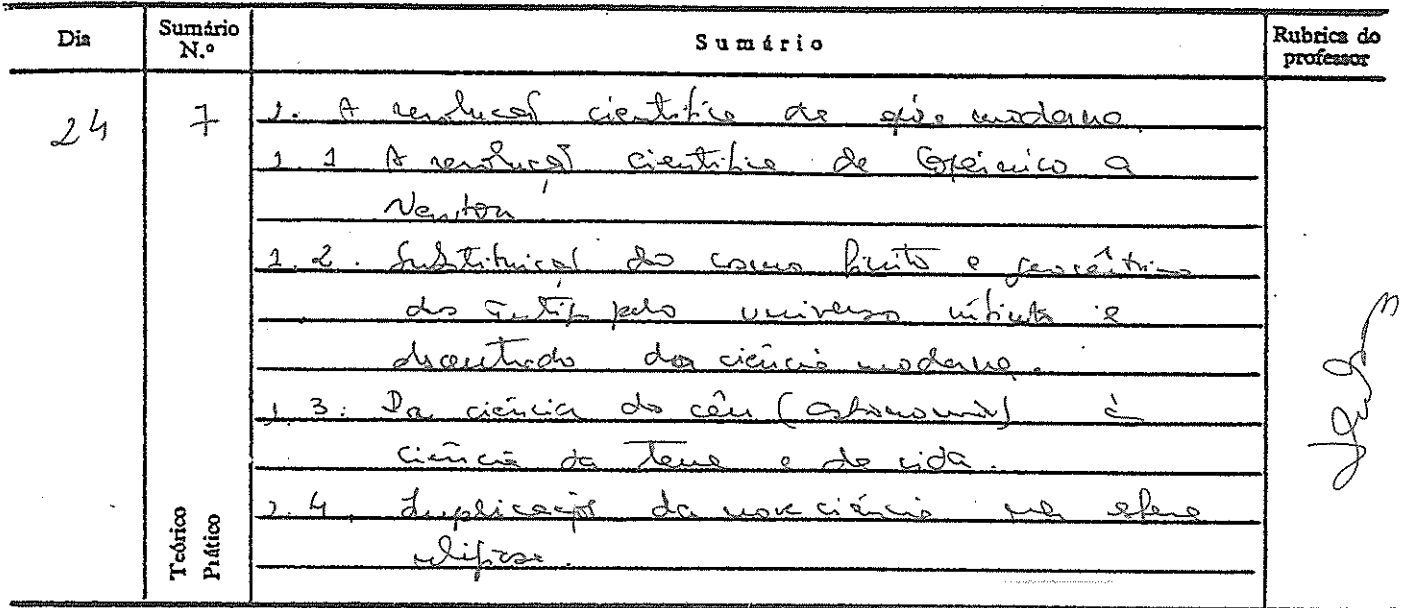 Dia Sumário N.º Sumário Rubrica do professor
24 7 1. A revolução científica da época moderna.
1.1 A revolução científica de Copérnico a
Newton.
1.2. Substituição do cosmo finito e geocêntrico
dos antigos pelo universo infinito e
descentrado da ciência moderna.
1.3. Da ciência do céu (astronomia) à
ciência da Terra e da vida.
1.4. Implicações da nova ciência na esfera
religiosa.
Teórico
Prático